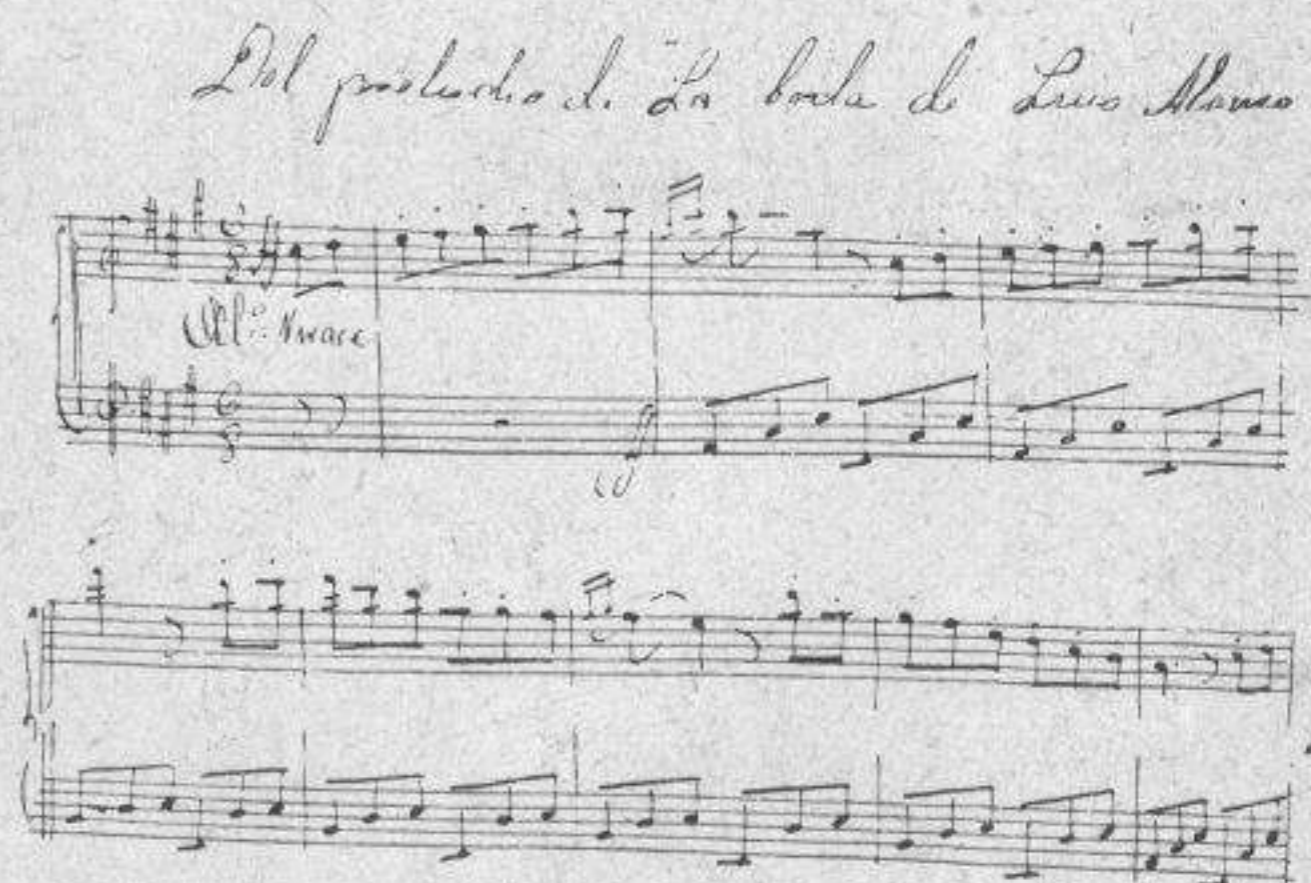 Del preludio de La boda de Luis Alonso
6
8
All.º Vivace
6
8
ff